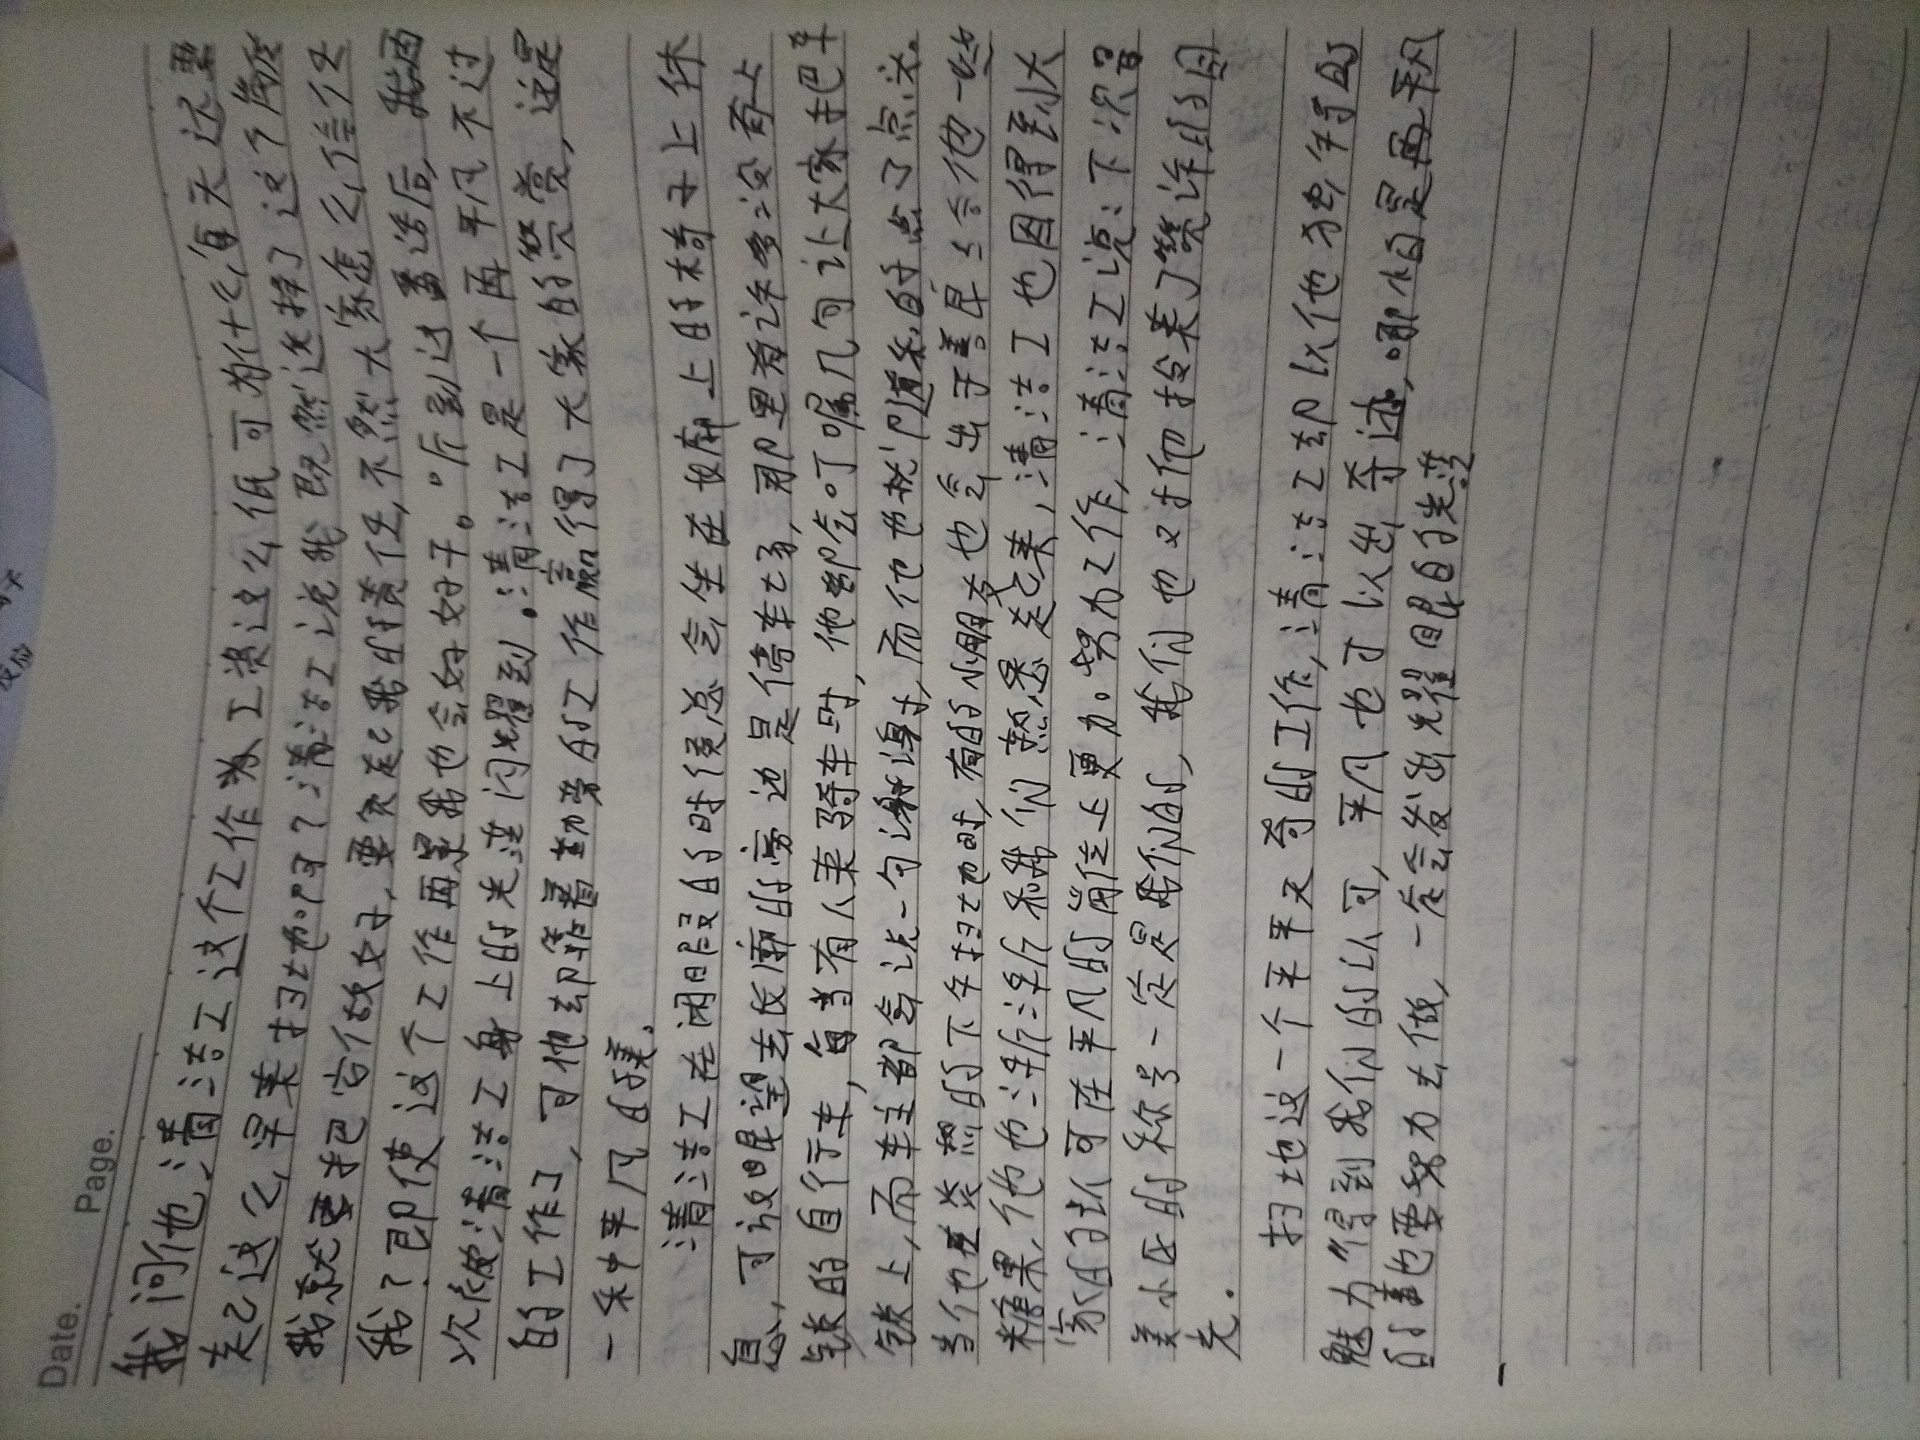 Date. Page.
我问他清洁工这个工作为工资这么低可为什么每天还要
起这么早来扫地呀？清洁工说我既然选择了这个角度
我就要把它做好，要负起我的责任，不然大家怎么信任
我？即使这个工作再累我也会好好干。"听到这番话后，我再
次被清洁工身上的光芒闪耀到。清洁工是一个再平凡不过
的工作了，可他却靠着勤劳的工作赢得了大家的赞赏，这是
一种平凡的美。
清洁工在闲暇的时候总会坐在长廊上的椅子上休
息，可没眼望去长廊的旁边是停车场，那里有许多没有上
锁的自行车，每当有人来骑车时，他都会叮嘱几句让大家把车
锁上，而车主都会说一句谢谢，而他也就门道系的点了点头。
当他悠然的下午扫地时，有的小朋友也会出于善意上会他一些
糖果，他也津津乐称我们热思起来，清洁工也因得到大
家的认可在平凡的岗位上更加。努力工作，清洁工说：下次留
美小区的称号一定是我们的，我们也又对他投来了赞许的目
光。
扫地这一个平平无奇的工作，清洁工却以他独有的
魅力"得到我们的认可，平凡也可以出奇迹，哪怕是再平凡
的事也要努力去做，一定会发出耀眼的光芒